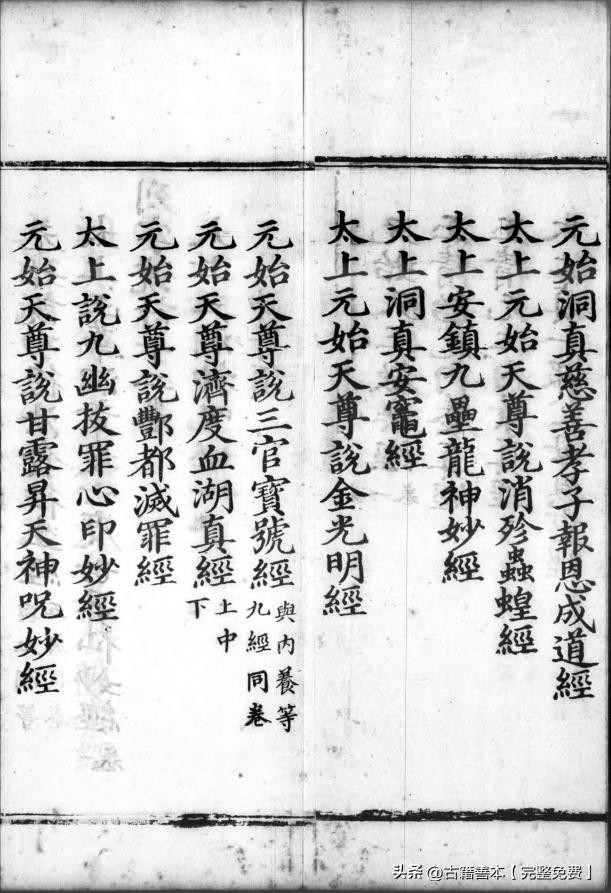 元始洞真慈善孝子報恩成道經
太上元始天尊說消殄蟲蝗經
太上安鎮九壘龍神妙經
太上洞真安竈經
太上元始天尊說金光明經
元始天尊說三官寶號經 與內養等九經同卷
元始天尊濟度血湖真經 上中下
元始天尊說酆都滅罪經
太上說九幽拔罪心印妙經
元始天尊說甘露昇天神呪妙經
头条 @古籍善本【完整免费】